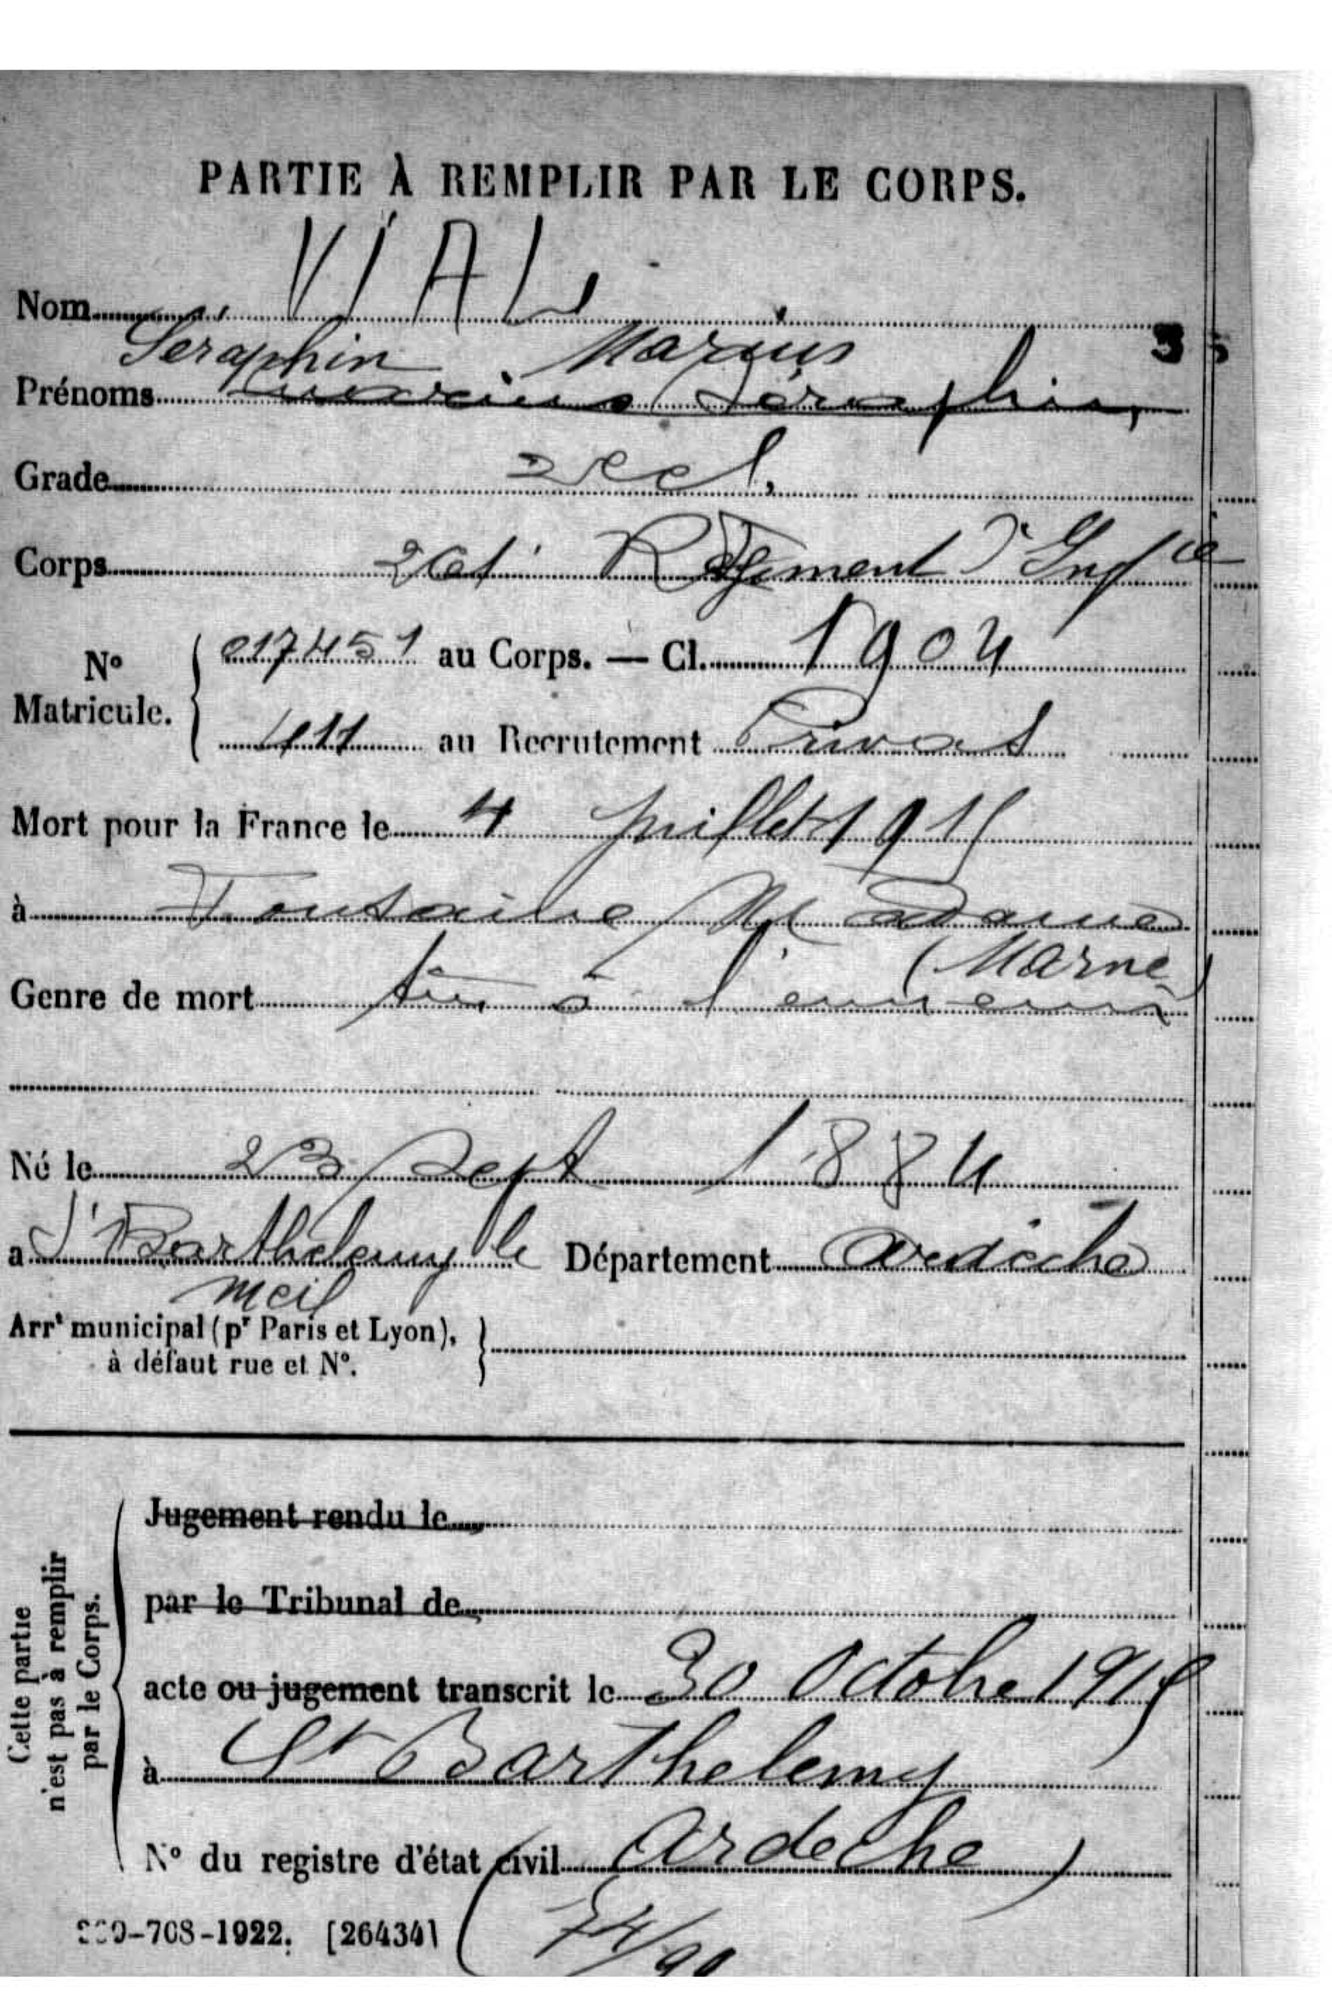 PARTIE À REMPLIR PAR LE CORPS.
Nom VIAL
Séraphin Marius
Prénoms Marius Séraphin,
Grade 2e cl.
Corps Régiment d'Infie
No Matricule. 017451 au Corps. — Cl. 1904
411 au Recrutement Privas
Mort pour la France le 4 juillet 1915
à
(Marne)
Genre de mort tué à l'ennemi
Né le 23 Sept 1884
a St Barthelemy le Département Ardèche
meil
Arrt municipal (pr Paris et Lyon),
à défaut rue et No.
Cette partie
n'est pas à remplir
par le Corps.
Jugement rendu le
par le Tribunal de
acte ou jugement transcrit le 30 Octobre 1915
à St Barthelemy
No du registre d'état civil (Ardeche)
-708-1922. [26434]
74/90